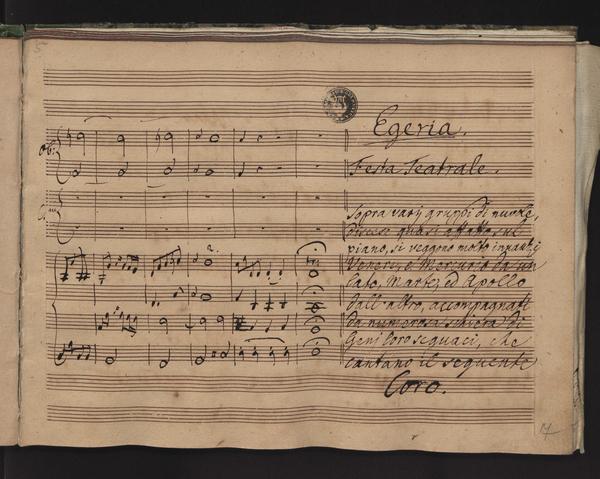 Egeria.
Festa Teatrale.
Sopra varj gruppi di nuvole,
discesi quasi affatto sul
piano, si veggono molto innanzi
Venere, e Mercurio da un
lato, Marte, ed Apollo
dall' altro, accompagnati
da numerosa schiera di
Geni loro seguaci, che
cantano il seguente
Coro.
Ob:
17